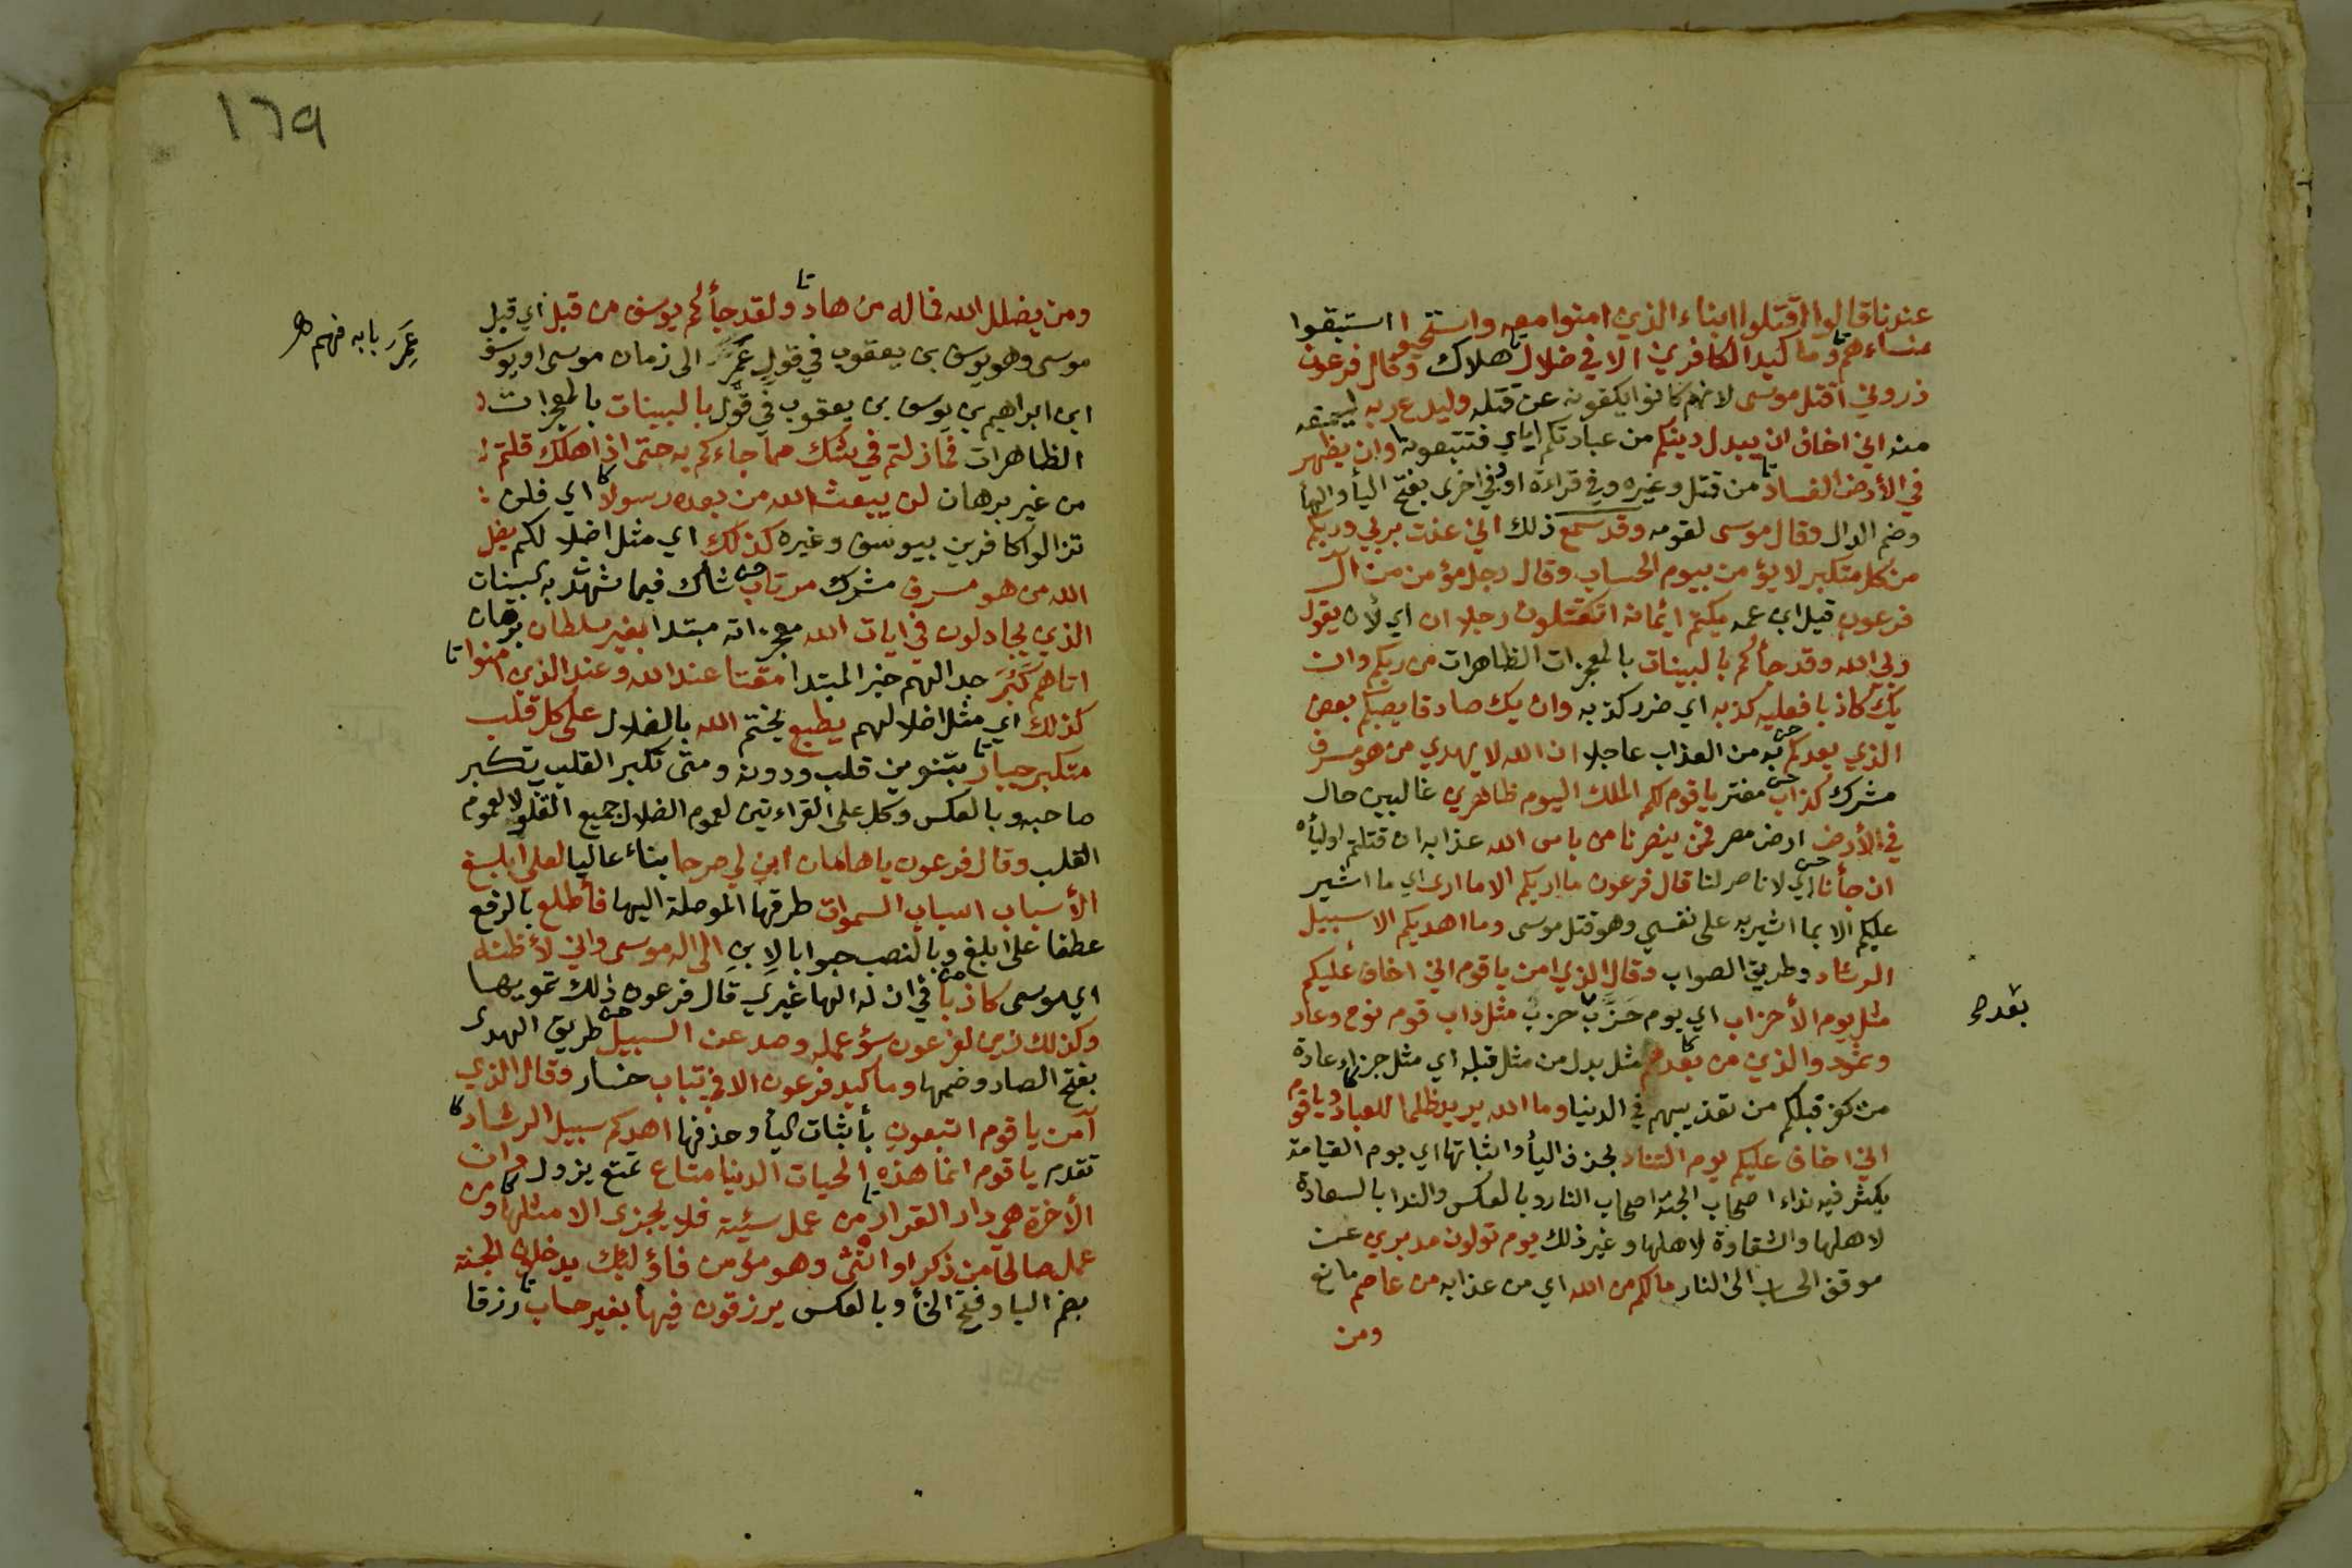 عندنا قالوا اقتلوا ابناء الذين امنوا معه واستحيوا استبقوا
نساءهم وما كيد الكافرين الا في ضلال هلاك وقال فرعون
ذروني اقتل موسى لانهم كانوا يكفونه عن قتله وليدع ربه ليمنعه
منه اني اخاف ان يبدل دينكم من عبادتكم اياي فتتبعونه وان يظهر
في الأرض الفساد من قتل وغيره وفي قراءة او وفي اخرى بفتح اليأ والهأ
وضم الدال وقال موسى لقومه وقد سمع ذلك اني عذت بربي وربكم
من كل متكبر لا يؤمن بيوم الحساب وقال رجل مؤمن من آل
فرعون قيل ابن عمه يكتم ايمانه اتقتلون رجلا ان اي لأن يقول
ربي الله وقد جأكم بالبينات بالمعجزات الظاهرات من ربكم وان
يك كاذبا فعليه كذبه اي ضرر كذبه وان يك صادقا يصبكم بعض
الذي يعدكم به من العذاب عاجلا ان الله لا يهدي من هو مسرف
مشرك كذاب مفتر يا قوم لكم الملك اليوم ظاهرين غالبين حال
في الأرض ارض مصر فمن ينصرنا من باس الله عذابه ان قتلتم اوليأه
ان جأنا اي لا ناصر لنا قال فرعون ما اريكم الا ما ارى اي ما اشير
عليكم الا بما اشير به على نفسي وهو قتل موسى وما اهديكم الا سبيل
الرشاد وطريق الصواب وقال الذي امن يا قوم اني اخاف عليكم
مثل يوم الأحزاب اي يوم حزب حزب مثل داب قوم نوح وعاد
وثمود والذين من بعدهم مثل بدل من مثل قبله اي مثل جزاء عادة
من كفر قبلكم من تعذيبهم في الدنيا وما الله يريد ظلما للعباد ويا قوم
اني اخاف عليكم يوم التناد بحذف اليأ واثباتها اي يوم القيامة
يكثر فيه نداء اصحاب الجنة اصحاب النار وبالعكس والندا بالسعادة
لاهلها والشقاوة لاهلها وغير ذلك يوم تولون مدبرين عن
موقف الحساب الى النار ما لكم من الله اي من عذابه من عاصم مانع
ومن
بعدهم
١٦٩
ومن يضلل الله فما له من هاد ولقد جأكم يوسف من قبل اي قبل
موسى وهو يوسف بن يعقوب في قول عمر الى زمان موسى او يوسف
ابن ابراهيم بن يوسف بن يعقوب في قول بالبينات بالمعجزات
الظاهرات فما زلتم في شك مما جاءكم به حتى اذا هلك قلتم
من غير برهان لن يبعث الله من بعده رسولا اي فلن
تزالوا كافرين بيوسف وغيره كذلك اي مثل اضلالكم يضل
الله من هو مسرف مشرك مرتاب شاك فيما شهدت به البينات
الذين يجادلون في ايات الله معجزاته مبتدا بغير سلطان برهان
اتاهم كبر جدالهم خبر المبتدا مقتا عند الله وعند الذين امنوا
كذلك اي مثل اضلالهم يطبع يختم الله بالضلال على كل قلب
متكبر جبار بتنوين قلب ودونه ومتى تكبر القلب تكبر
صاحبه وبالعكس وكل على القراءتين لعموم الضلال جميع القلب لا لعموم
القلب وقال فرعون يا هامان ابن لي صرحا بناء عاليا لعلي ابلغ
الأسباب اسباب السموات طرقها الموصلة اليها فأطلع بالرفع
عطفا على ابلغ وبالنصب جوابا لابن الى اله موسى واني لأظنه
اي موسى كاذبا في ان له الها غيري قال فرعون ذلك تمويها
وكذلك زين لفرعون سؤ عمله وصد عن السبيل طريق الهدى
بفتح الصاد وضمها وما كيد فرعون الا في تباب خسار وقال الذي
آمن يا قوم اتبعون بأثبات اليأ وحذفها اهدكم سبيل الرشاد
تقدم يا قوم انما هذه الحيات الدنيا متاع تمتع يزول وان
الأخرة هي دار القرار من عمل سيئة فلا يجزى الا مثلها ومن
عمل صالحا من ذكر او انثى وهو مؤمن فاؤلئك يدخلون الجنة
بضم اليا وفتح الخأ وبالعكس يرزقون فيها بغير حساب رزقا
عمر